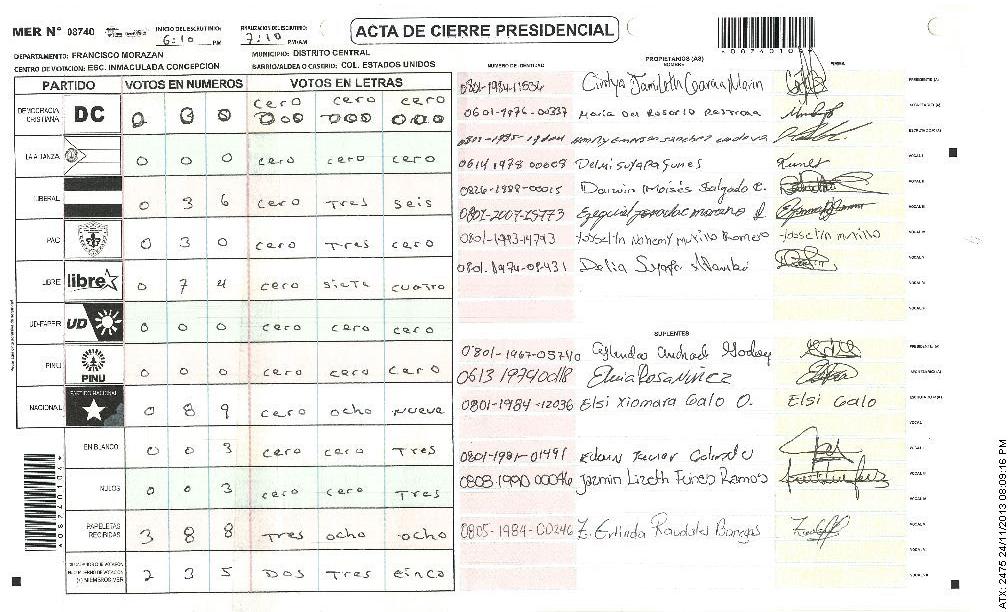 MER N° 08740 INICIO DEL ESCRUTINIO: 6:10 PM FINALIZACION DEL ESCRUTINIO: 7:10 PM/AM
ACTA DE CIERRE PRESIDENCIAL
DEPARTAMENTO: FRANCISCO MORAZAN MUNICIPIO: DISTRITO CENTRAL
CENTRO DE VOTACION: ESC. INMACULADA CONCEPCION BARRIO/ALDEA O CASERIO: COL. ESTADOS UNIDOS
PARTIDO VOTOS EN NUMEROS VOTOS EN LETRAS
DEMOCRACIA CRISTIANA DC 0 0 0 cero cero cero
LA ALIANZA 0 0 0 cero cero cero
LIBERAL 0 3 6 cero Tres seis
PAC 0 3 0 cero Tres cero
LIBRE libre 0 7 4 cero siete cuatro
UD-FAPER UD 0 0 0 cero cero cero
PINU PINU 0 0 0 cero cero cero
NACIONAL PARTIDO NACIONAL 0 8 9 cero ocho nueve
EN BLANCO 0 0 3 cero cero Tres
NULOS 0 0 3 cero cero Tres
PAPELETAS RECIBIDAS 3 8 8 Tres ocho ocho
2 3 5 Dos Tres cinco
NUMERO DE IDENTIDAD PROPIETARIOS (AS) NOMBRE FIRMA
PRESIDENTE (A)
0601-1976-00337 Maria Del Rosario
SECRETARIO (A)
ESCRUTADOR (A)
0614 1978 00008
VOCAL I
0826-1988-00015 Darwin Moisés Salgado C.
VOCAL II
0801-2007-15773
VOCAL III
0801-1993-14793 Yosselin Nohemy Murillo Romero Yosselin Murillo
VOCAL IV
Delia
VOCAL V
SUPLENTES
PRESIDENTE (A)
Elvia Rosa Nuñez
SECRETARIO (A)
0801-1984-12036 Elsi Xiomara Galo O. Elsi Galo
ESCRUTADOR (A)
VOCAL I
0801-1981-01491 Edwin Javier
VOCAL II
0808 1990 00096 Jazmin Lizeth Funes Ramos
VOCAL III
0805-1984-00246 Z. Erlinda
VOCAL V
ATX: 2475 24/11/2013 08:09:16 PM